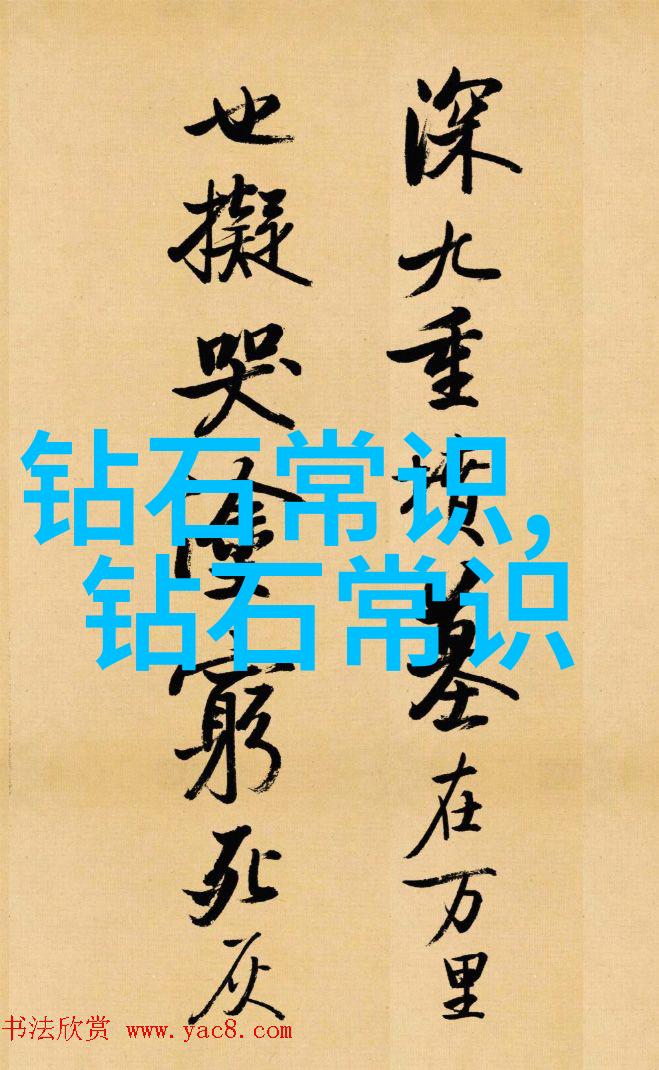 深九重墳墓在万里
也擬哭塗窮死灰
钻石常识,
钻石常识
书法欣赏 www.yac8.com